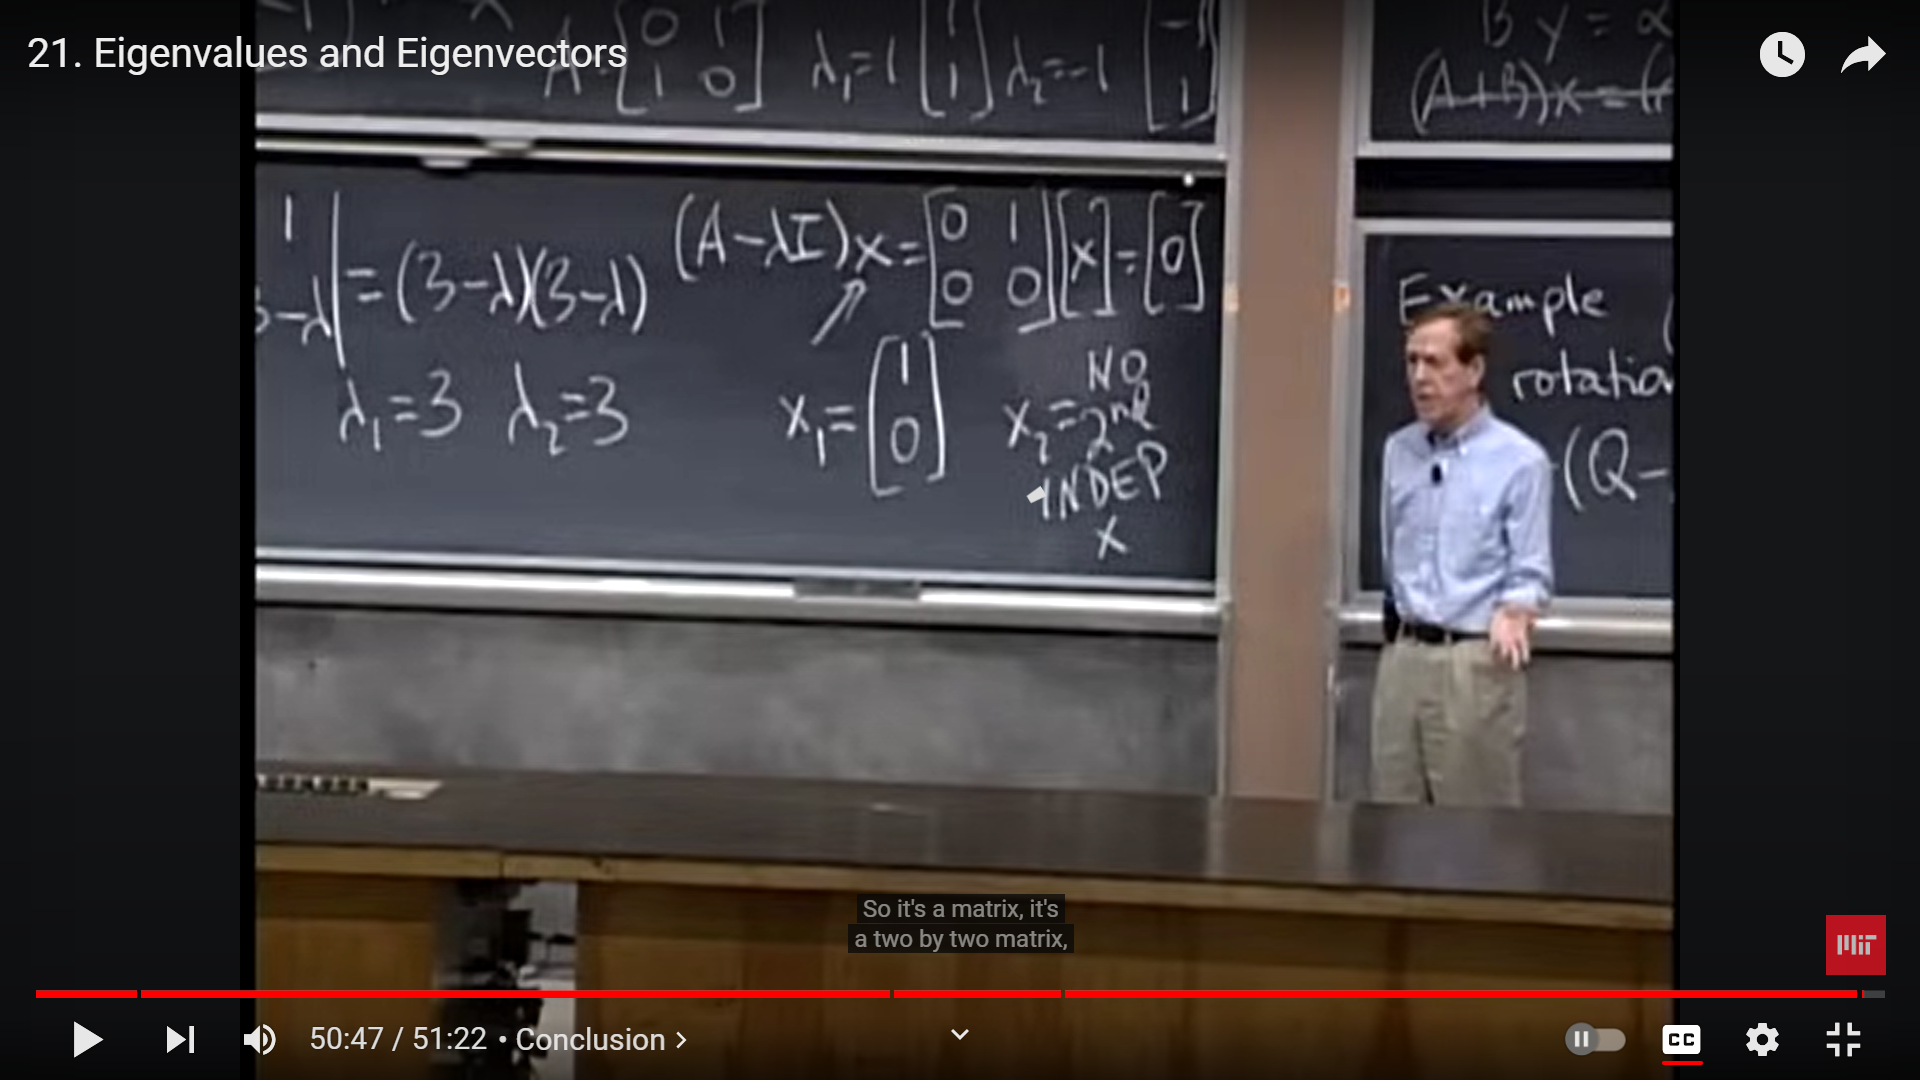 21. Eigenvalues and Eigenvectors
A = [0 1; 1 0] λ₁=1 [1; 1] λ₂=-1 [-1; 1]
B y = α
(A+B)x = (
1
3-λ | = (3-λ)(3-λ)
λ₁=3 λ₂=3
(A-λI)x = [0 1; 0 0] [x] = [0]
x₁ = [1; 0]
x₂ = NO
2nd
INDEP
x
Example
rotatio
(Q-
So it's a matrix, it's
a two by two matrix,
MIT
50:47 / 51:22 • Conclusion >
CC